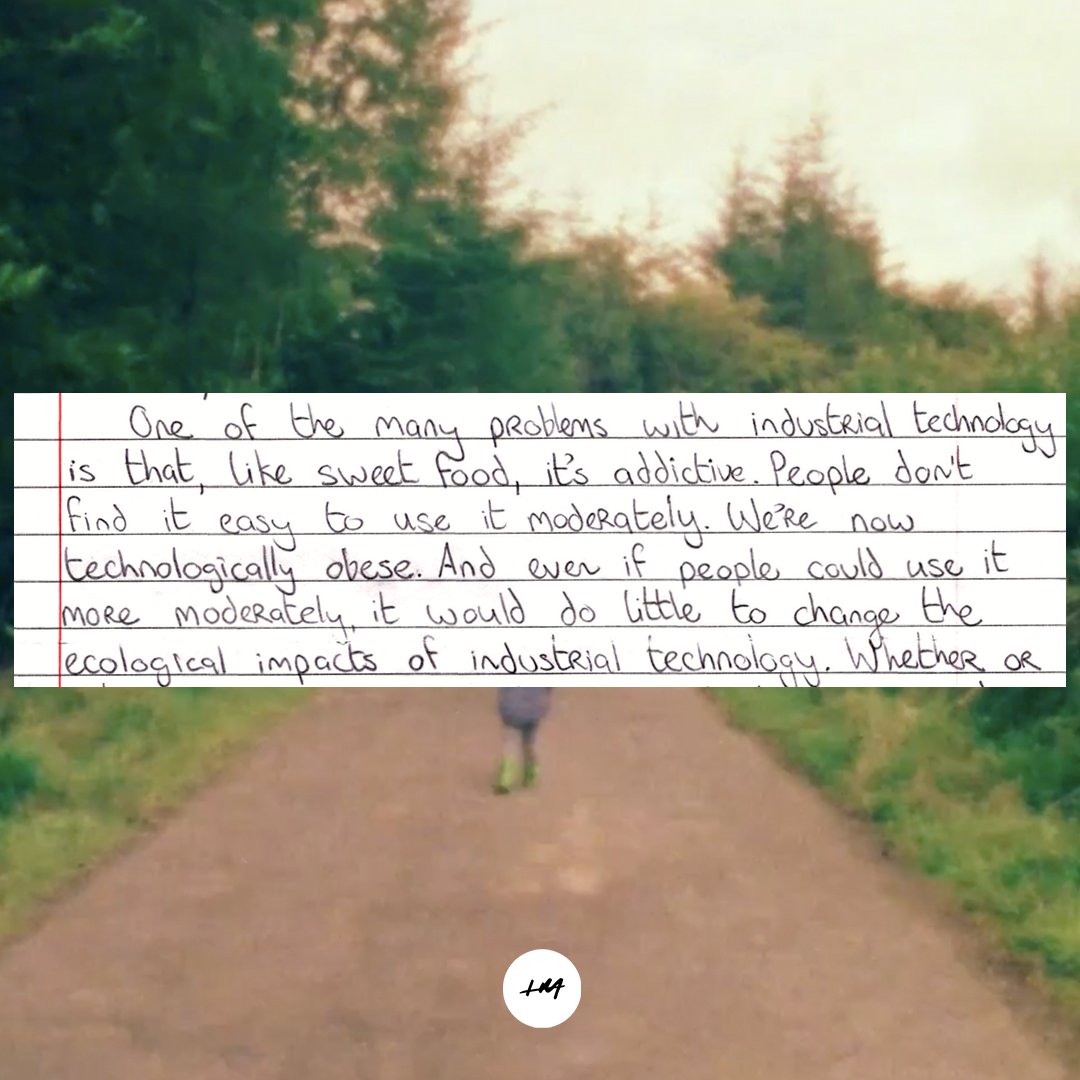 One of the many problems with industrial technology
is that, like sweet food, it's addictive. People don't
find it easy to use it moderately. We're now
technologically obese. And even if people could use it
more moderately, it would do little to change the
ecological impacts of industrial technology. Whether or